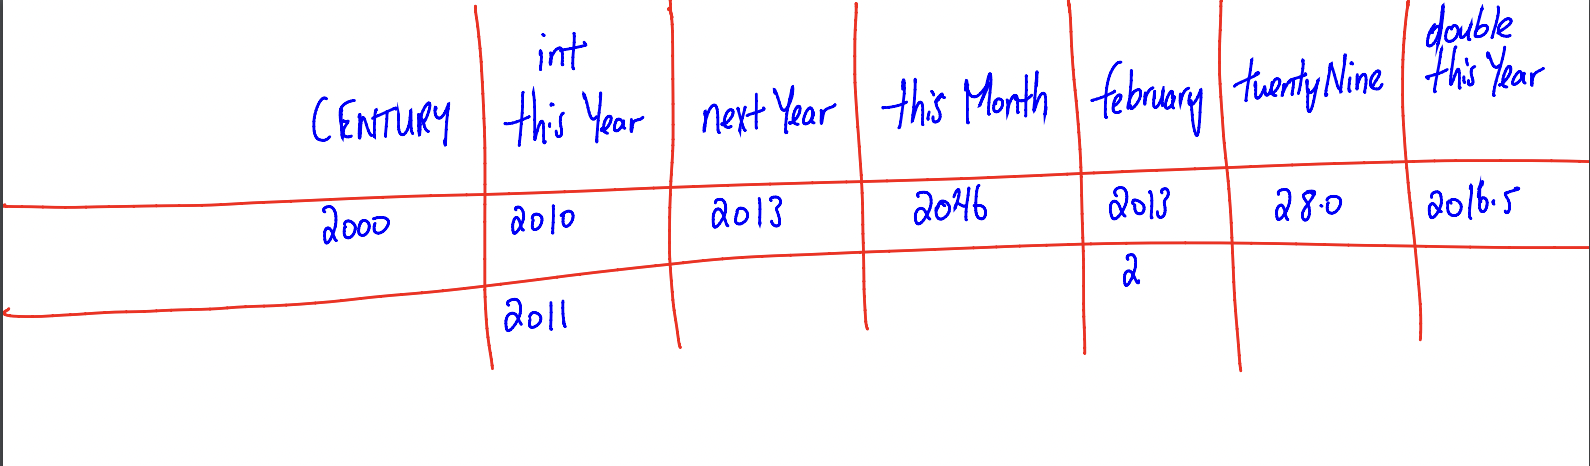 CENTURY
int
this Year
next Year
this Month
february
twentyNine
double
this Year
2000
2010
2013
2013
28.0
2016.5
2011
2